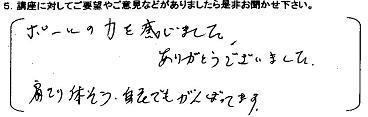 5. 講座に対してご要望やご意見などがありましたら是非お聞かせ下さい。
ボールの力を感じました。
ありがとうございました。
肩こり体そう、自宅でもがんばってます。